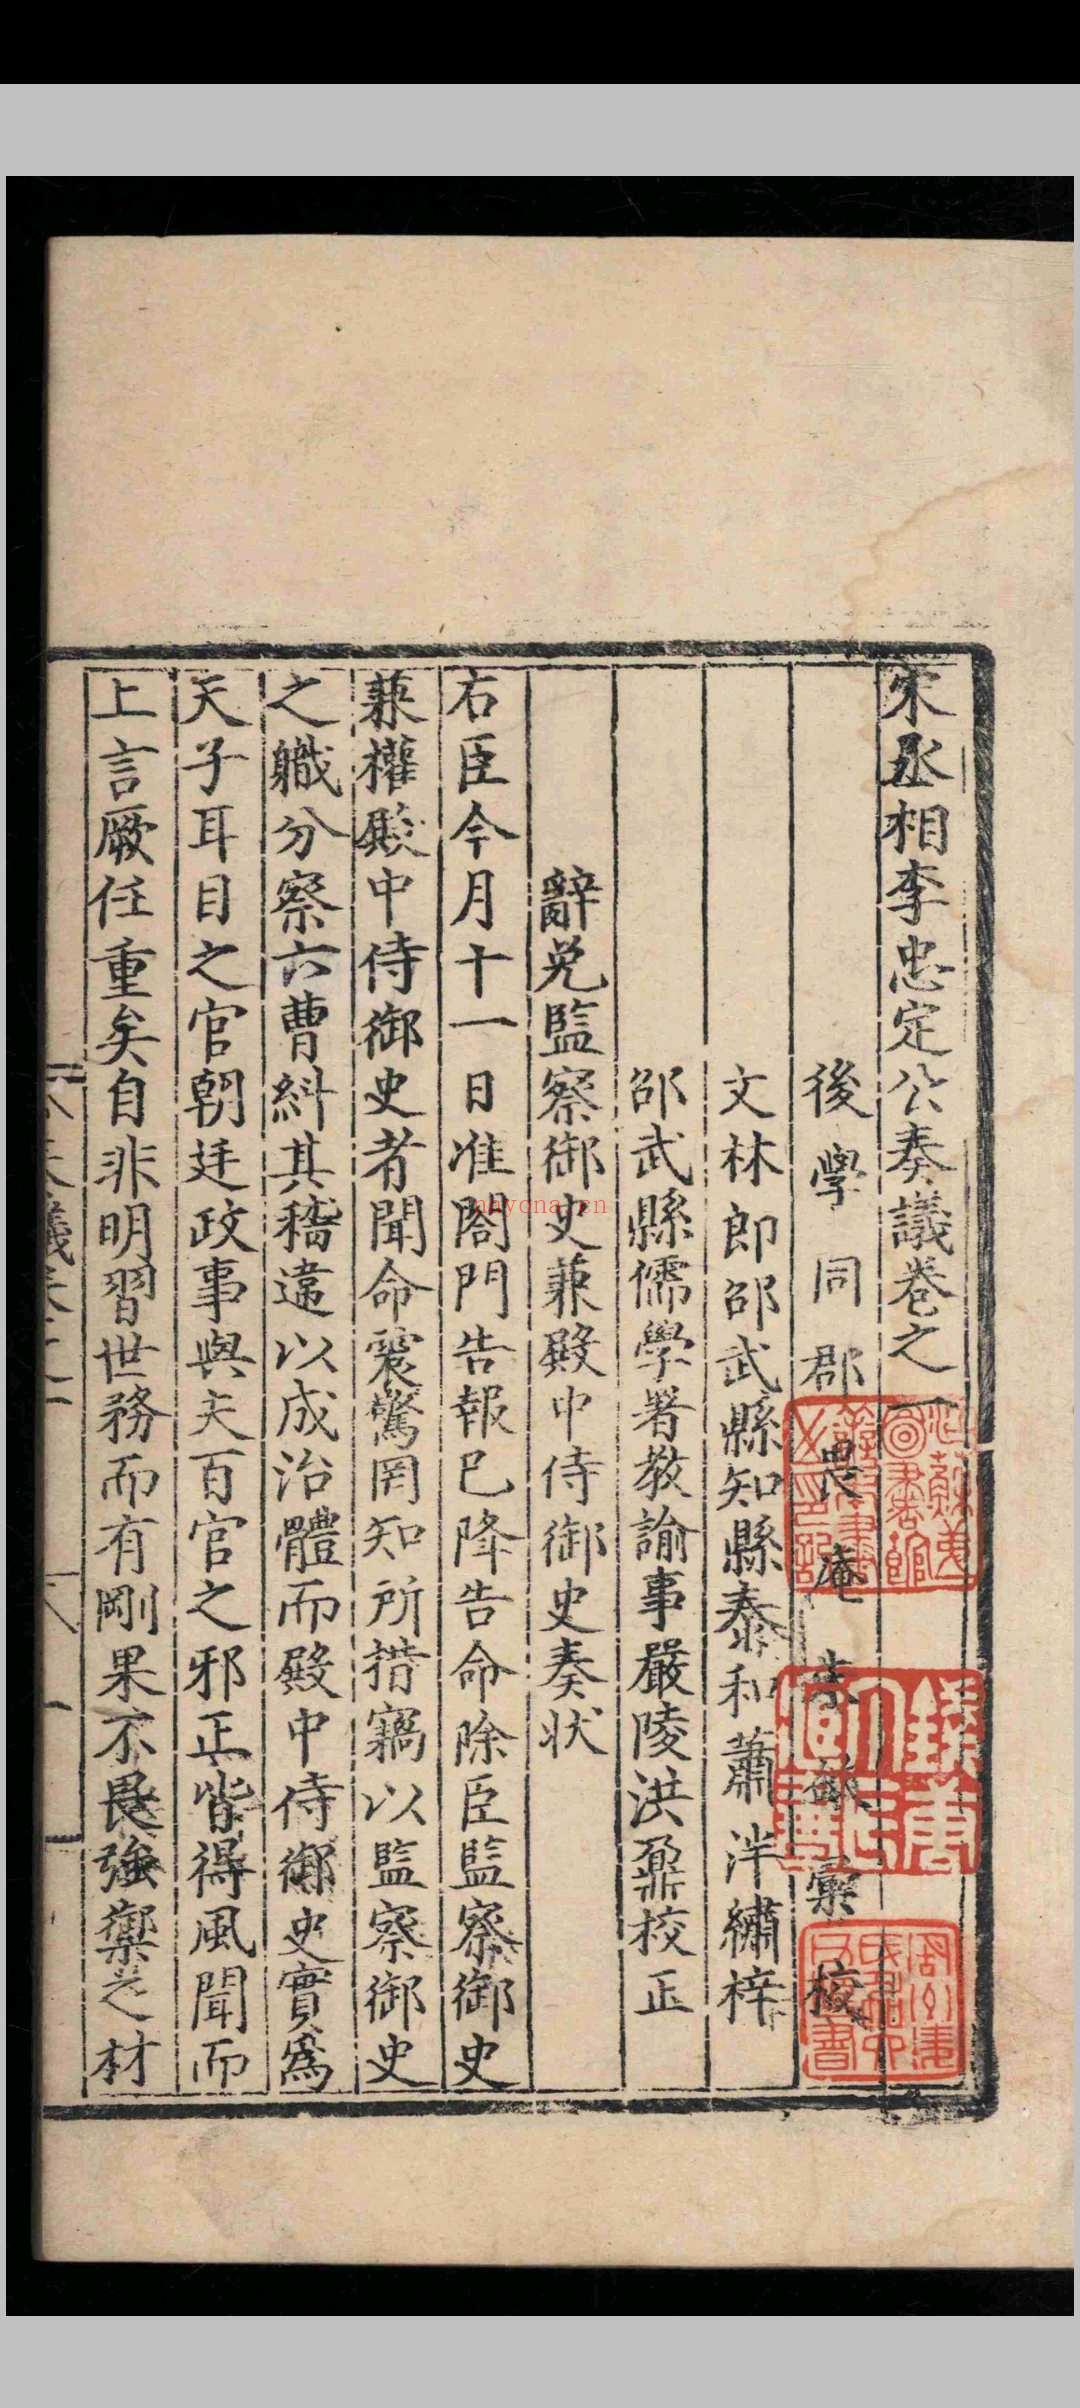 宋丞相李忠定公奏議卷之一
後學同郡畏庵朱欽彙校
文林郎邵武縣知縣泰和蕭泮繡梓
邵武縣儒學署教諭事嚴陵洪鼐校正
辭免監察御史兼殿中侍御史奏狀
右臣今月十一日准閤門告報已降告命除臣監察御史
兼權殿中侍御史者聞命震驚罔知所措竊以監察御史
之職分察六曹糾其稽違以成治體而殿中侍御史實爲
天子耳目之官朝廷政事與夫百官之邪正皆得風聞而
上言厥任重矣自非明習世務而有剛果不畏強禦之材
nayona.cn